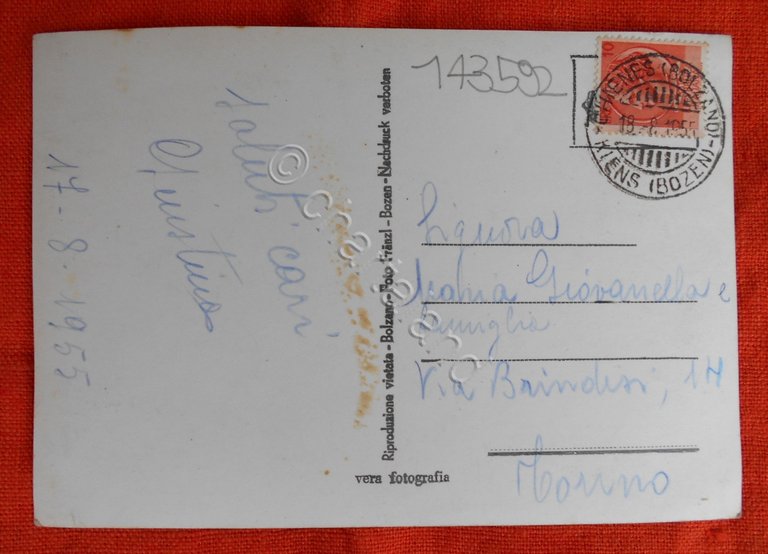 17-8 1955
Saluti cari
Giustina
Riproduzione vietata - Bolzano - Foto Fränzl - Bozen - Nachdruck verboten
vera fotografia
143592
10
CHIENES (BOLZANO)
18.-8.1955
KIENS (BOZEN)
Signora
Maria Giovanella e
Famiglia
Via Brindisi, 14
Torino